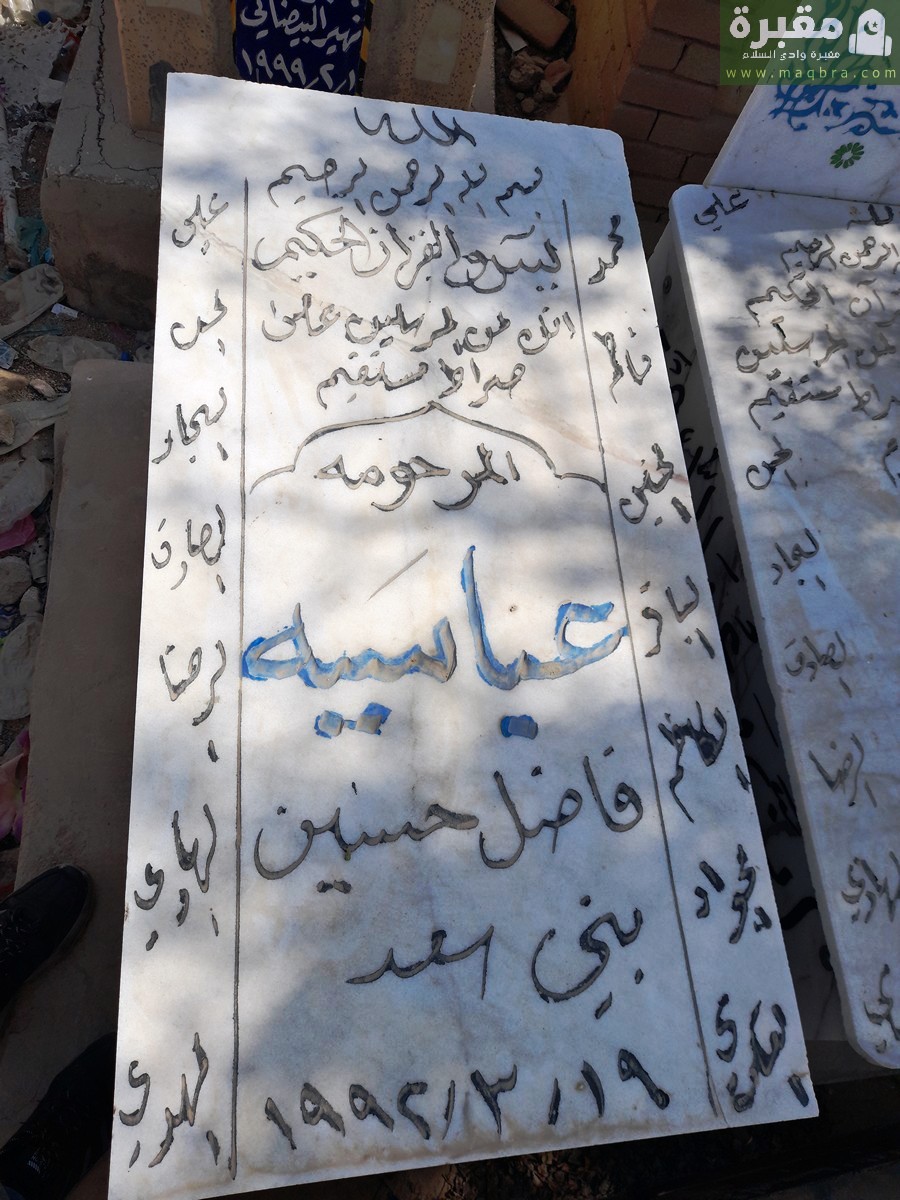 مقبرة
مقبرة وادي السلام
www.maqbra.com
نهير البيضاني
الله
بسم الله الرحمن الرحيم
يس والقرآن الحكيم
انك لمن المرسلين على
صراط مستقيم
المرحومه
عباسيه
فاضل حسين
بني اسد
١٩٩٢/٣/١٩
محمد
فاطمه
الحسين
الباقر
الكاظم
الجواد
العسكري
علي
الحسن
السجاد
الصادق
الرضا
الهادي
المهدي
علي
الله
الرحمن الرحيم
صراط مستقيم
الحسن
السجاد
الصادق
الرضا
الهادي